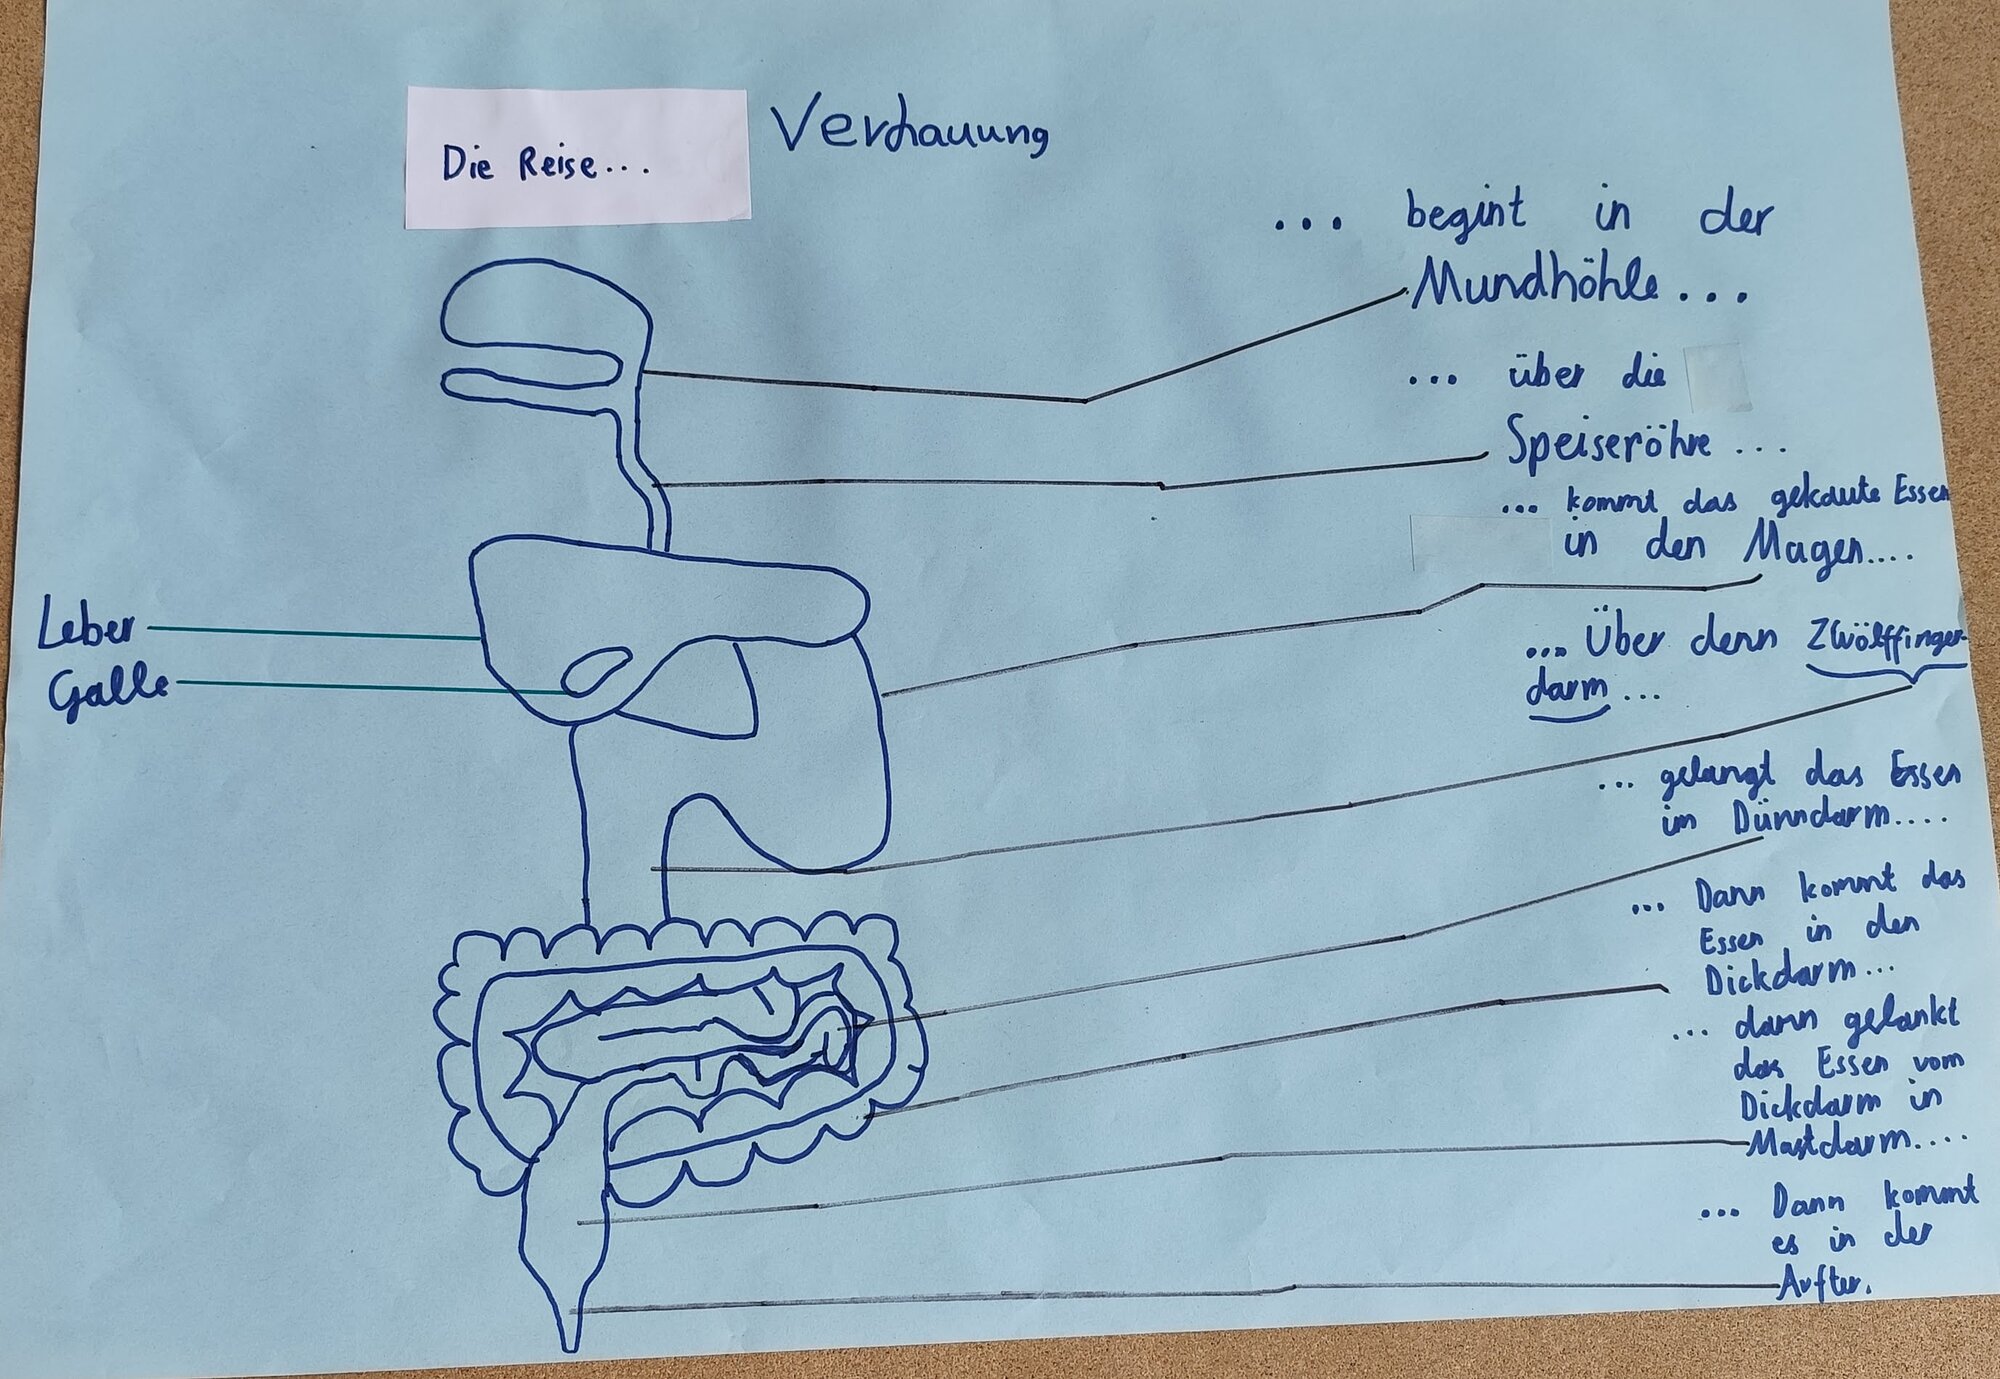 Verdauung
Die Reise...
... begint in der
Mundhöhle...
... über die
Speiseröhre...
... kommt das gekaute Essen
in den Magen....
Leber
Galle
... Über denn Zwölffinger-
darm...
... gelangt das Essen
im Dünndarm....
... Dann kommt das
Essen in den
Dickdarm...
... dann gelankt
das Essen vom
Dickdarm in
Mastdarm....
... Dann kommt
es in der
Aufter.